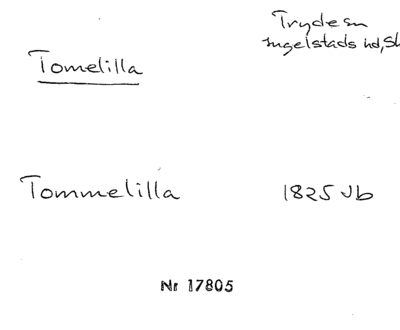 Tryde sn
Ingelstads hd, Sk
Tomelilla
Tommelilla 1825 Jb
Nr 17805